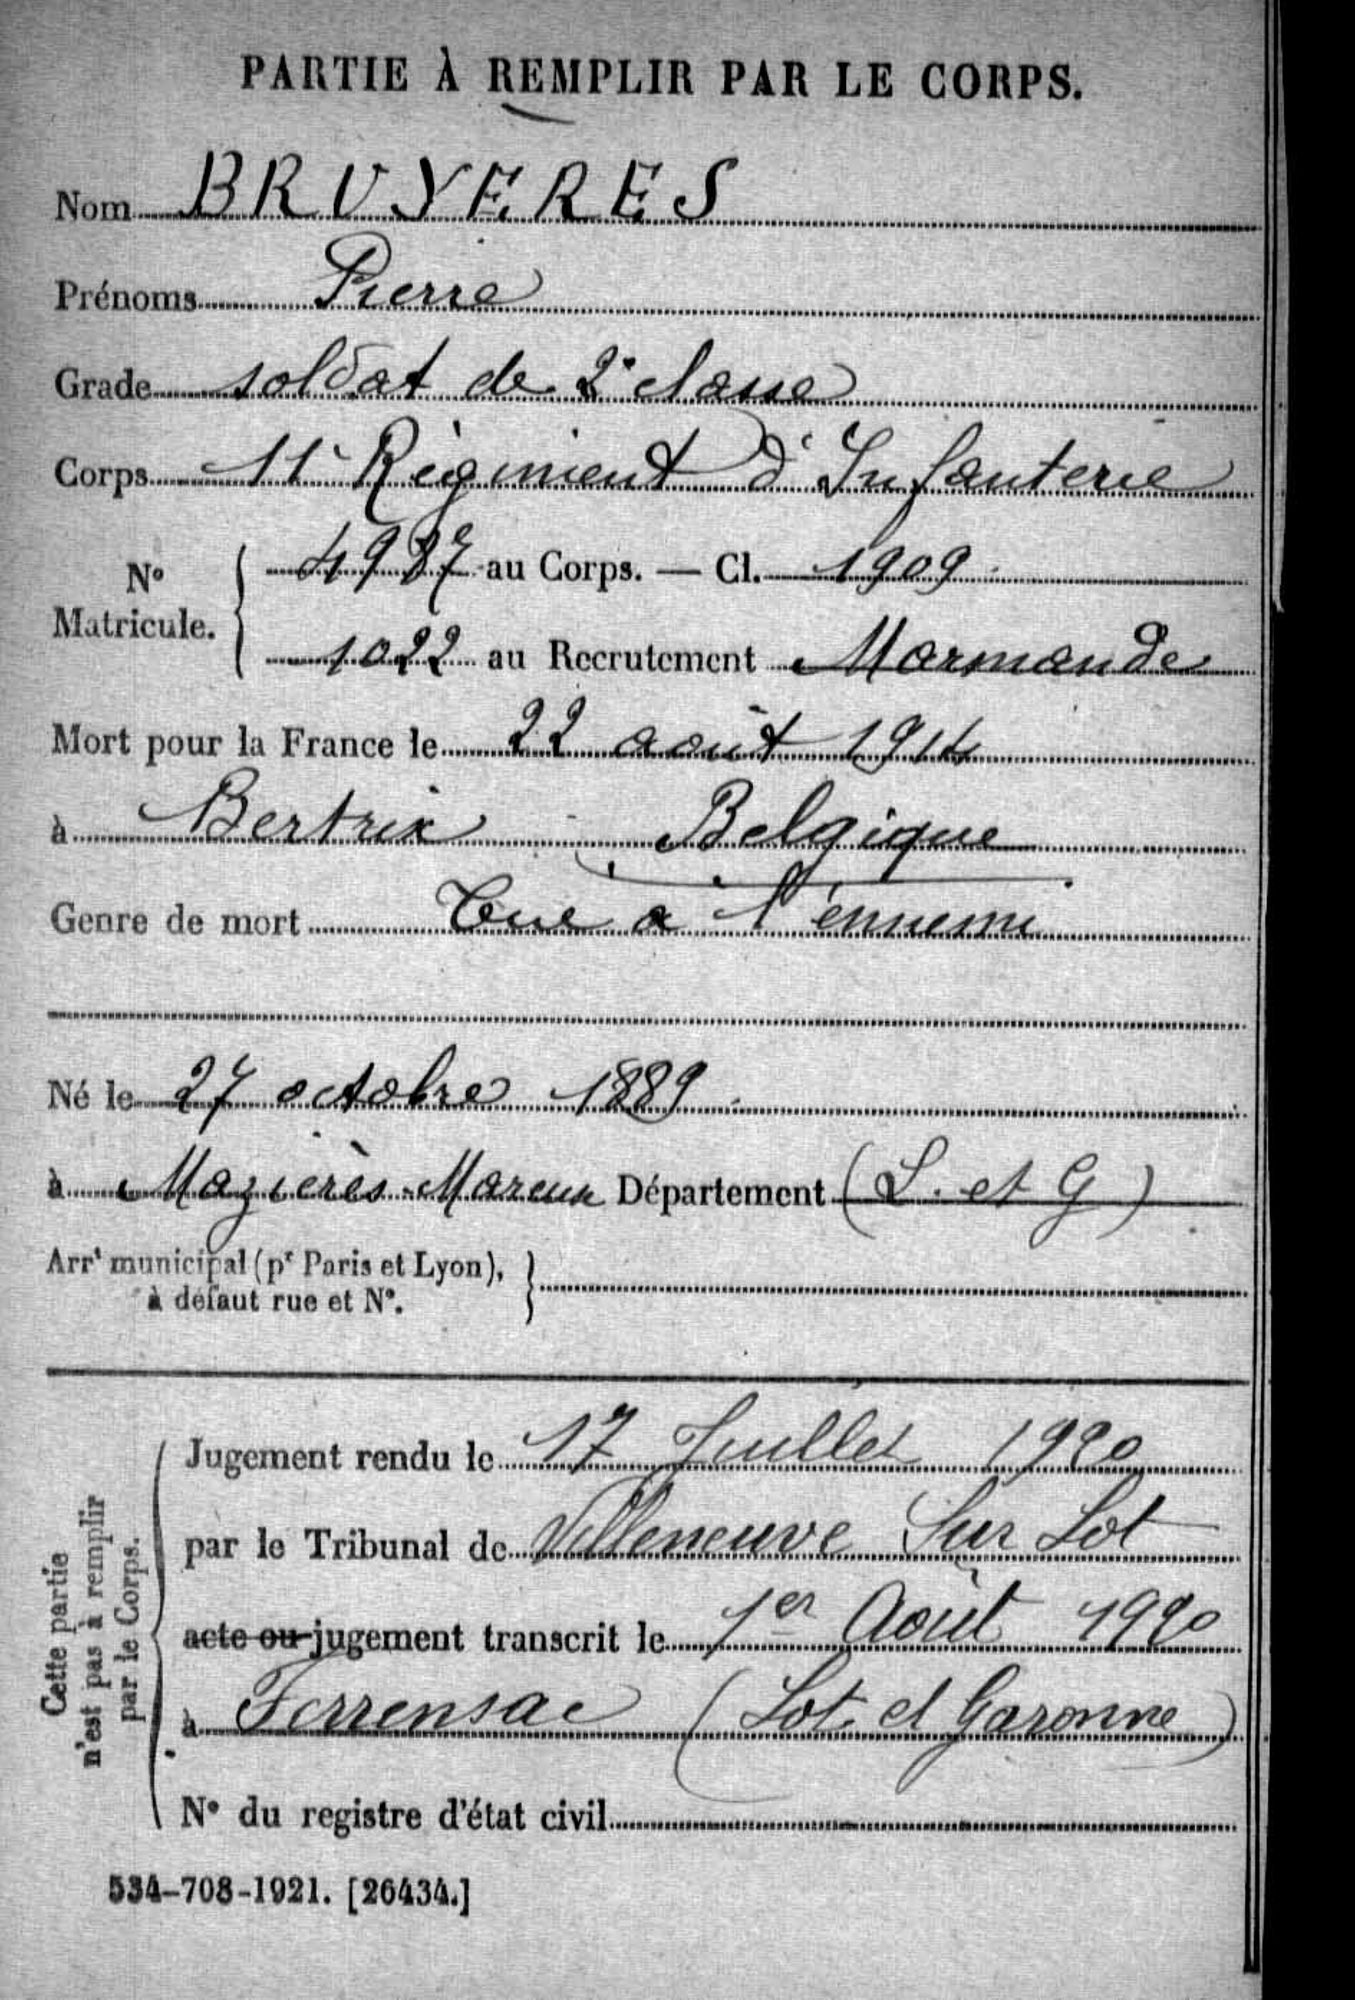 PARTIE À REMPLIR PAR LE CORPS.
Nom BRUYERES
Prénoms Pierre
Grade soldat de 2e classe
Corps 11e Régiment d'Infanterie
No Matricule. { 4987 au Corps. — Cl. 1909
1022 au Recrutement Marmande
Mort pour la France le 22 août 1914
à Bertrix Belgique
Genre de mort Tué à l'ennemi
Né le 27 octobre 1889
à Mazières-Mareux Département (L. et G)
Arrt municipal (pr Paris et Lyon), à défaut rue et No. }
Cette partie n'est pas à remplir par le Corps.
Jugement rendu le 17 Juillet 1920
par le Tribunal de Villeneuve Sur Lot
acte ou jugement transcrit le 1er Août 1920
à Ferrensac (Lot et Garonne)
No du registre d'état civil
534-708-1921. [26434.]